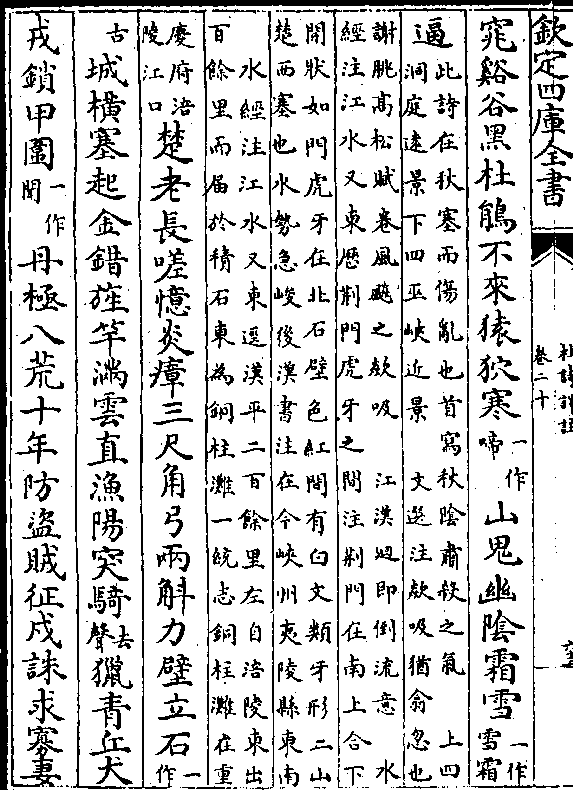 欽定四庫全書
杜詩詳註
卷二十
窕谿谷黑杜鵑不來猿狖寒一作啼山鬼幽陰霜雪一作雪霜
逼此詩在秋塞而傷亂也首寫秋陰肅殺之氣　上四
洞庭遠景下四巫峽近景　文選注欻吸猶翕忽也
謝朓高松賦卷風飈之欻吸　江漢廻即倒流意　水
經注江水又東歷荆門虎牙之間注荆門在南上合下
開狀如門虎牙在北石壁色紅間有白文類牙形二山
楚西塞也水勢急峻後漢書注在今峽州夷陵縣東南
水經注江水又東逕漢平二百餘里左自涪陵東出
百餘里而届於積石東為銅柱灘一統志銅柱灘在重
慶府涪陵江口楚老長嗟憶炎瘴三尺角弓兩斛力壁立石一作
古城橫塞起金錯旌竿滿雲直漁陽突騎去聲獵青丘犬
戎鎖甲圍一作聞丹極八荒十年防盜賊征戍誅求寡妻